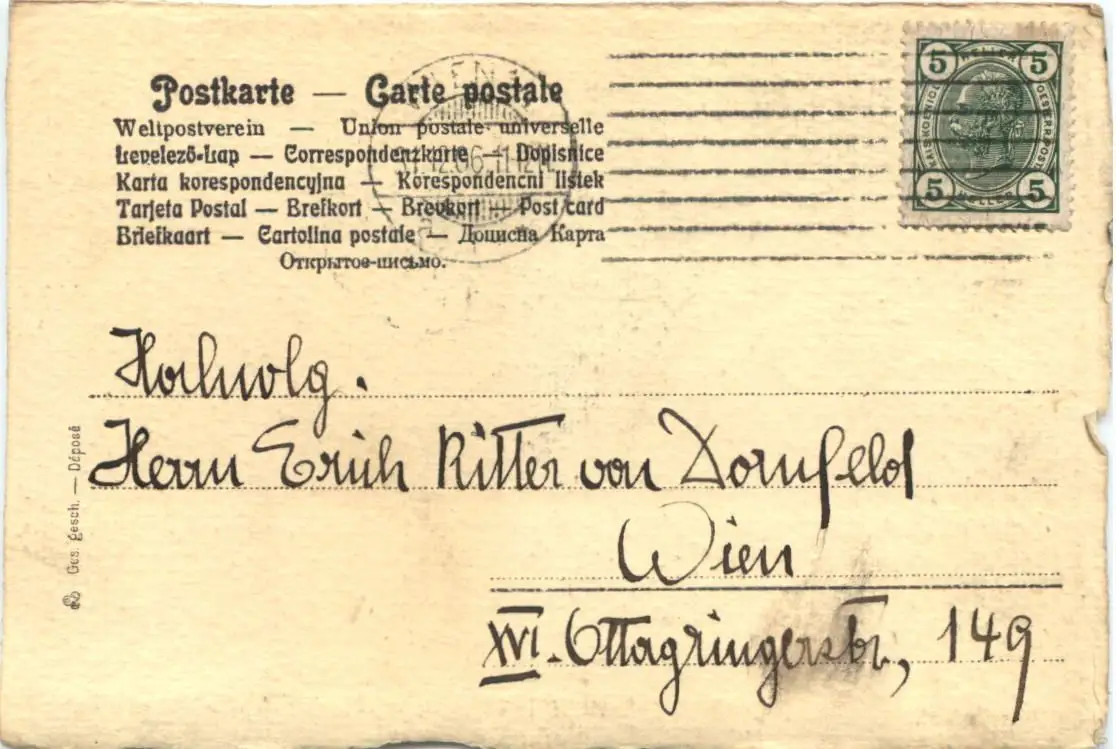 Postkarte — Carte postale
Weltpostverein — Union postale universelle
Levelező-Lap — Correspondenzkarte — Dopisnice
Karta korespondencyjna — Korespondencni listek
Tarjeta Postal — Brefkort — Brevkort — Post card
Briefkaart — Cartolina postale — Доцисна Карта
Открытое-письмо.
5 HELLER 5
5 HELLER 5
Hochwolg.
Herrn Erich Ritter von Dornfeld
Wien
XVI. Ottagringerstr., 149
Ges. gesch. — Déposé